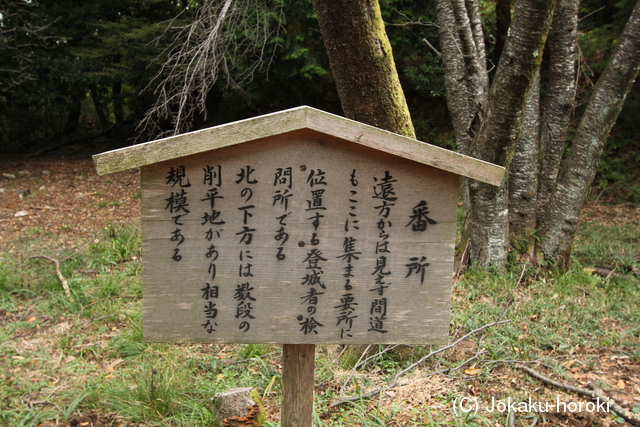 番所
遠方からは見えず間道
もここに集まる要所に
位置する登城者の検
問所である
北の下方には数段の
削平地があり相当な
規模である
(C) Jokaku-horoki